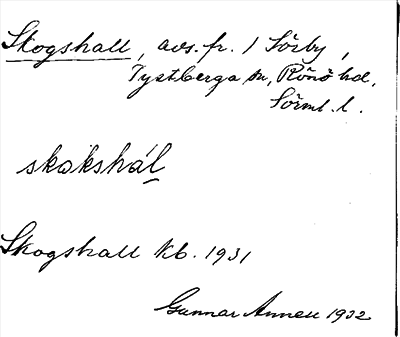 Skogshall, avs. fr. 1 Sörby,
Tystberga sn, Rönö hd,
Sörml. l.
skokshál
Skogshall kb. 1931
Gunnar Annell 1932